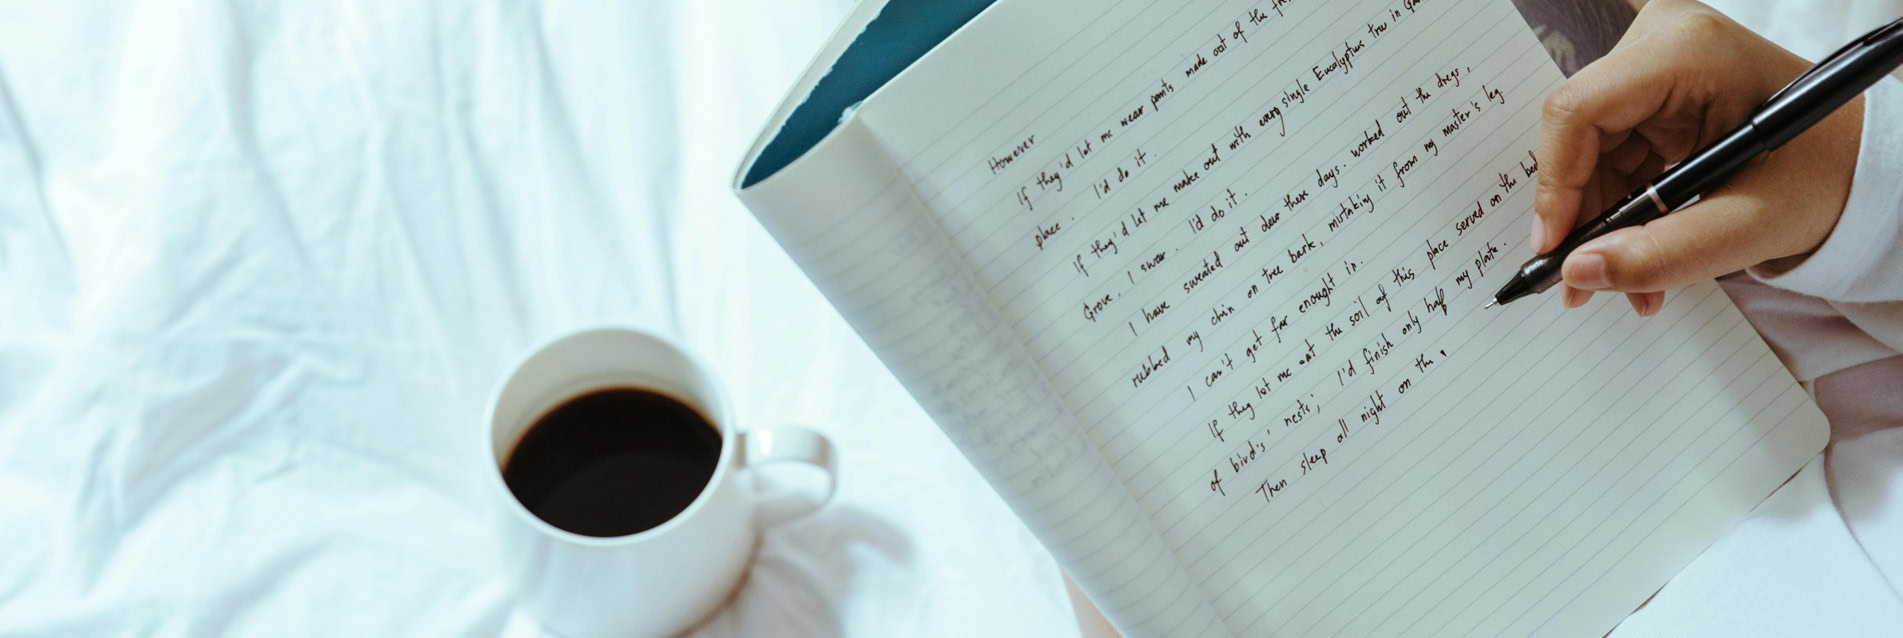 However
If they'd let me wear pants made out of the
place. I'd do it.
If they'd let me make out with every single Eucalyptus tree in
Grove, I swear. I'd do it.
I have sweated out over these days. worked out the dregs,
rubbed my chin on tree bark, mistaking it from my master's leg
I can't get far enough in.
If they let me eat the soil of this place served on the bed
of bird's' nests; I'd finish only half my plate.
Then sleep all night on the